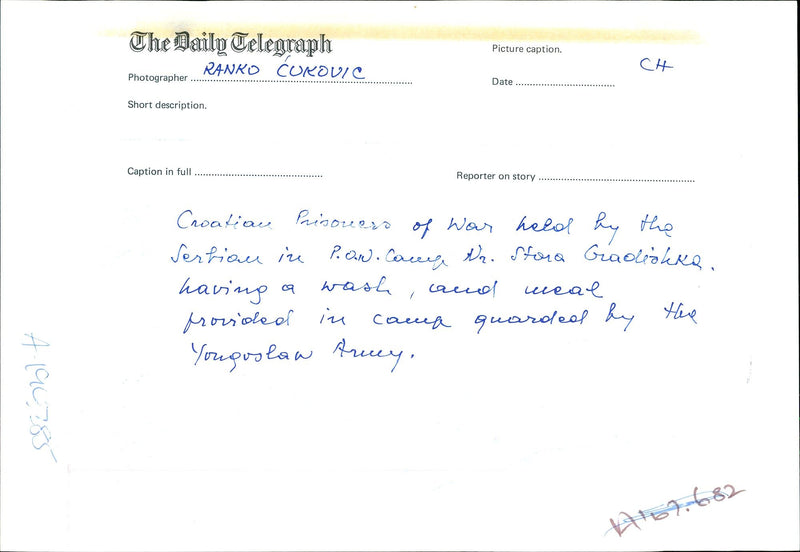 The Daily Telegraph
Picture caption.
CH
Photographer RANKO ĆUKOVIC
Date
Short description.
Caption in full
Reporter on story
Croatian Prisoners of War held by the
Serbian in P.O.W. Camp Nr. Stara Gradishka.
having a wash, and meal
provided in camp guarded by the
Yongoslav Army.